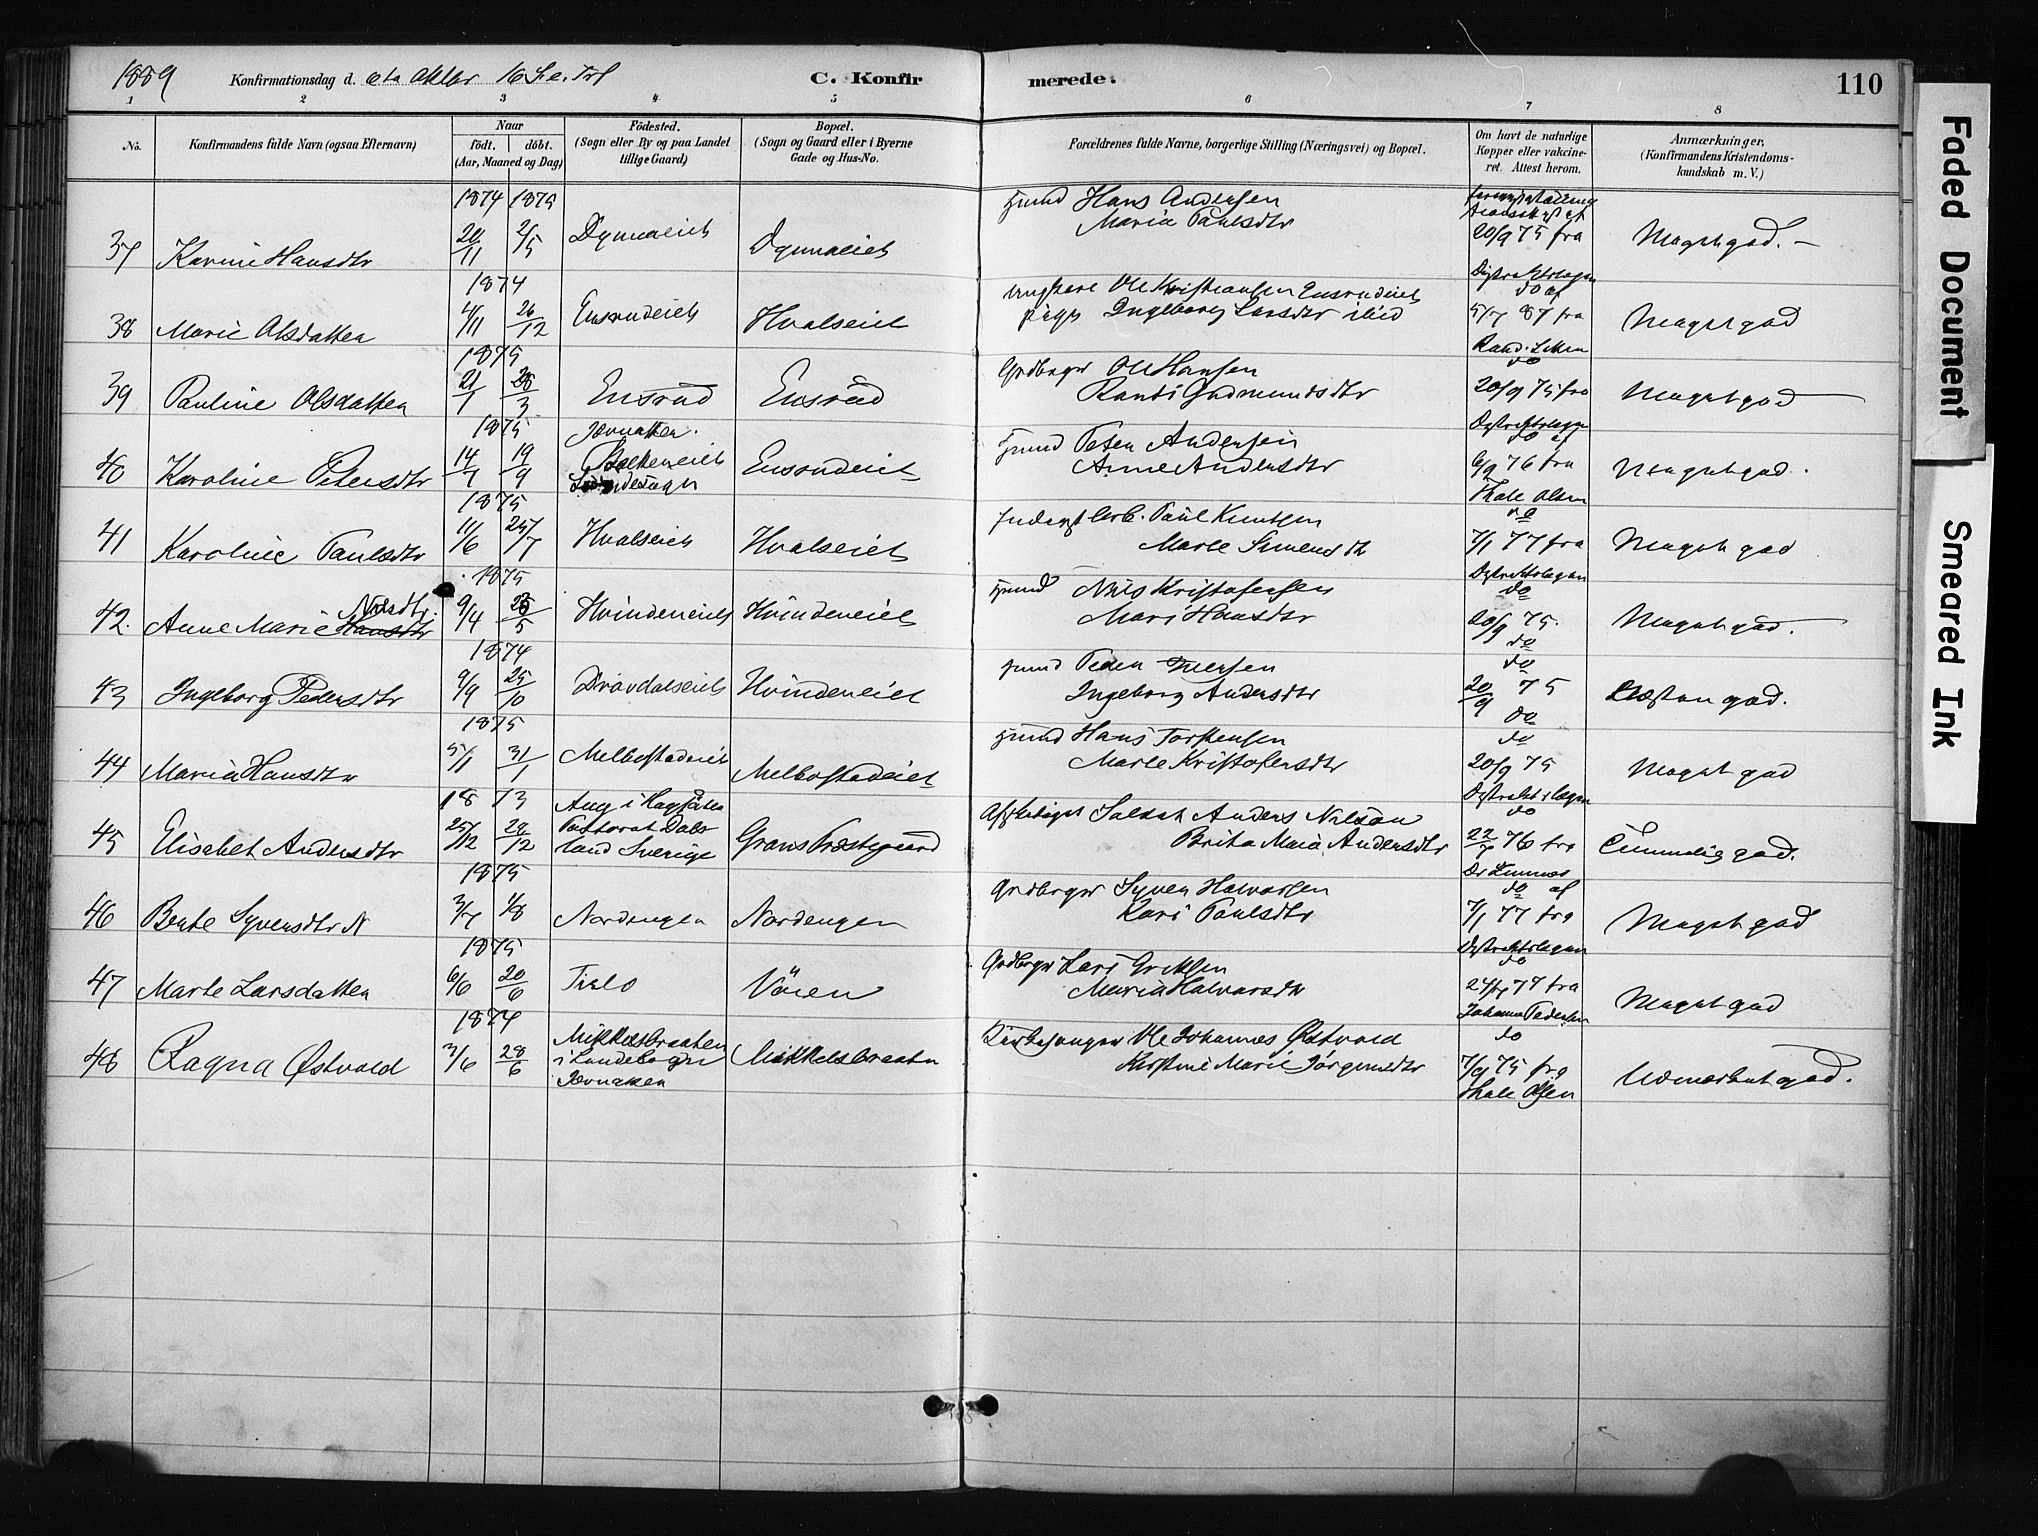 1889 Konfirmationsdag d. 6te Oktbr 16 S. e. Trf C. Konfirmerede. 110
1 2 3 4 5 6 7 8
No. Konfirmandens fulde Navn (ogsaa Efternavn) Naar født. døbt. (Aar, Maaned og Dag) Fødested. (Sogn eller By og paa Landet tillige Gaard) Bopæl. (Sogn og Gaard eller i Byerne Gade og Hus-No. Forældrenes fulde Navne, borgerlige Stilling (Næringsvei) og Bopæl. Om havt de naturlige Kopper eller vakcineret. Attest herom. Anmærkninger, (Konfirmandens Kristendomskundskab m. V.)
1874 1875
37 Karine Hansdtr 20/11 2/5 Dynnaeiet Dynnaeiet Hans Andersen Maria Paulsdtr 20/9 75 fra Distriktslægen Meget god. -
1874
38 Marie Olsdatter 4/11 26/12 Ensrudeiet Hvalseiet Ungkarl Ole Kristiansen Ensrudeiet pige Ingeborg Larsdtr ibid do af 5/7 87 fra Meget god
1875
39 Pauline Olsdatter 21/1 28/3 Ensrud Ensrud Grdbrger Ole Hansen Randi Gudmundsdtr do 20/9 75 fra Distriktslægen Meget god
1875
40 Karoline Petersdtr 14/7 19/9 Jevnaker. Ensrudeiet Peter Andersen Anne Andersdtr do af 6/9 76 fra Thale Olsen Meget god.
1875
41 Karoline Paulsdtr 11/6 25/7 Hvalseiet Hvalseiet Paul Knutsen Marte Simensdtr do 7/1 77 fra Distriktslægen Meget god
1875
42. Anne Marie Hansdtr Nilsdtr. 9/4 Hvindeneiet Hvindeneiet Nils Kristofersen Mari Hansdtr do 20/9 75. do Meget god.
1874
43 Ingeborg Pedersdtr 9/9 25/10 Dravdalseiet Hvindeneiet Peder Iversen Ingeborg Andersdtr do 20/9 75 do Næsten god.
1875
44 Maria Hansdtr 5/1 31/1 Melbostadeiet Melbostadeiet Hans Torstensen Marte Kristofersdtr do 20/9 75 Distriktslægen Meget god
1873
45 Elisabet Andersdtr 25/12 28/12 Pastorat Dalsland Sverige Grans Præstegaard Afskediget Soldat Anders Nilson Brita Maia Andersdtr do 22/7 76 fra Temmelig god.
1875
46 Berte Syversdtr N 3/7 1/8 Nordengen Nordengen Grdbrger Syver Halvorsen Kari Paulsdtr do af 7/1 77 fra Distriktslægen Meget god
1875
47 Marte Larsdatter 6/6 20/6 Tislo Vøien Grdbrger Lars Eriksen Maria Halvorsdtr do fra Johannes Pedersen Meget god
1874
48 Ragna Østvold 3/6 28/6 Mikkelsbraaten i Lundebogn Jevnaker Mikkelsbraaten Kirkesanger Ole Johannes Østvold Kirstine Marie Jørgensdtr do 7/9 75 fra Thale Olsen Udmerket god.
Faded Document
Smeared Ink